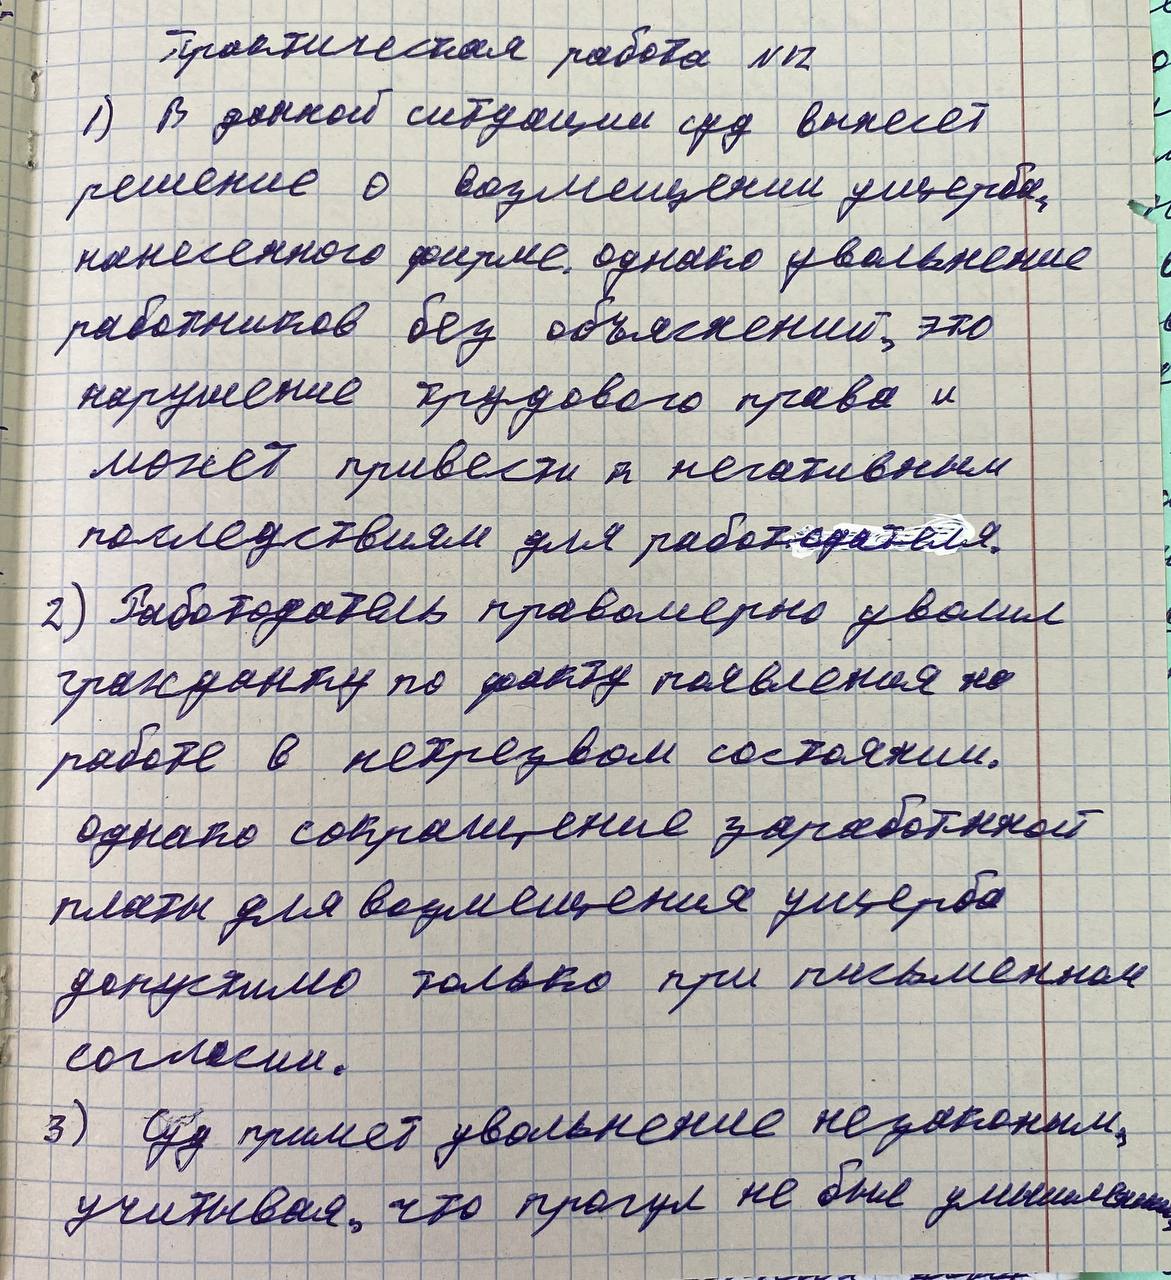 Практическая работа №12
1) В данной ситуации суд вынесет
решение о возмещении ущерба,
нанесенного фирме. однако увольнение
работников без объяснений, это
нарушение трудового права и
может привести к негативным
последствиям для работодателя.
2) Работодатель правомерно уволил
гражданку по факту появления на
работе в нетрезвом состоянии.
однако сокращение заработнной
платы для возмещения ущерба
допустимо только при письменном
согласии.
3) Суд примет увольнение незаконым,
учитывая, что прогул не был умышленным,